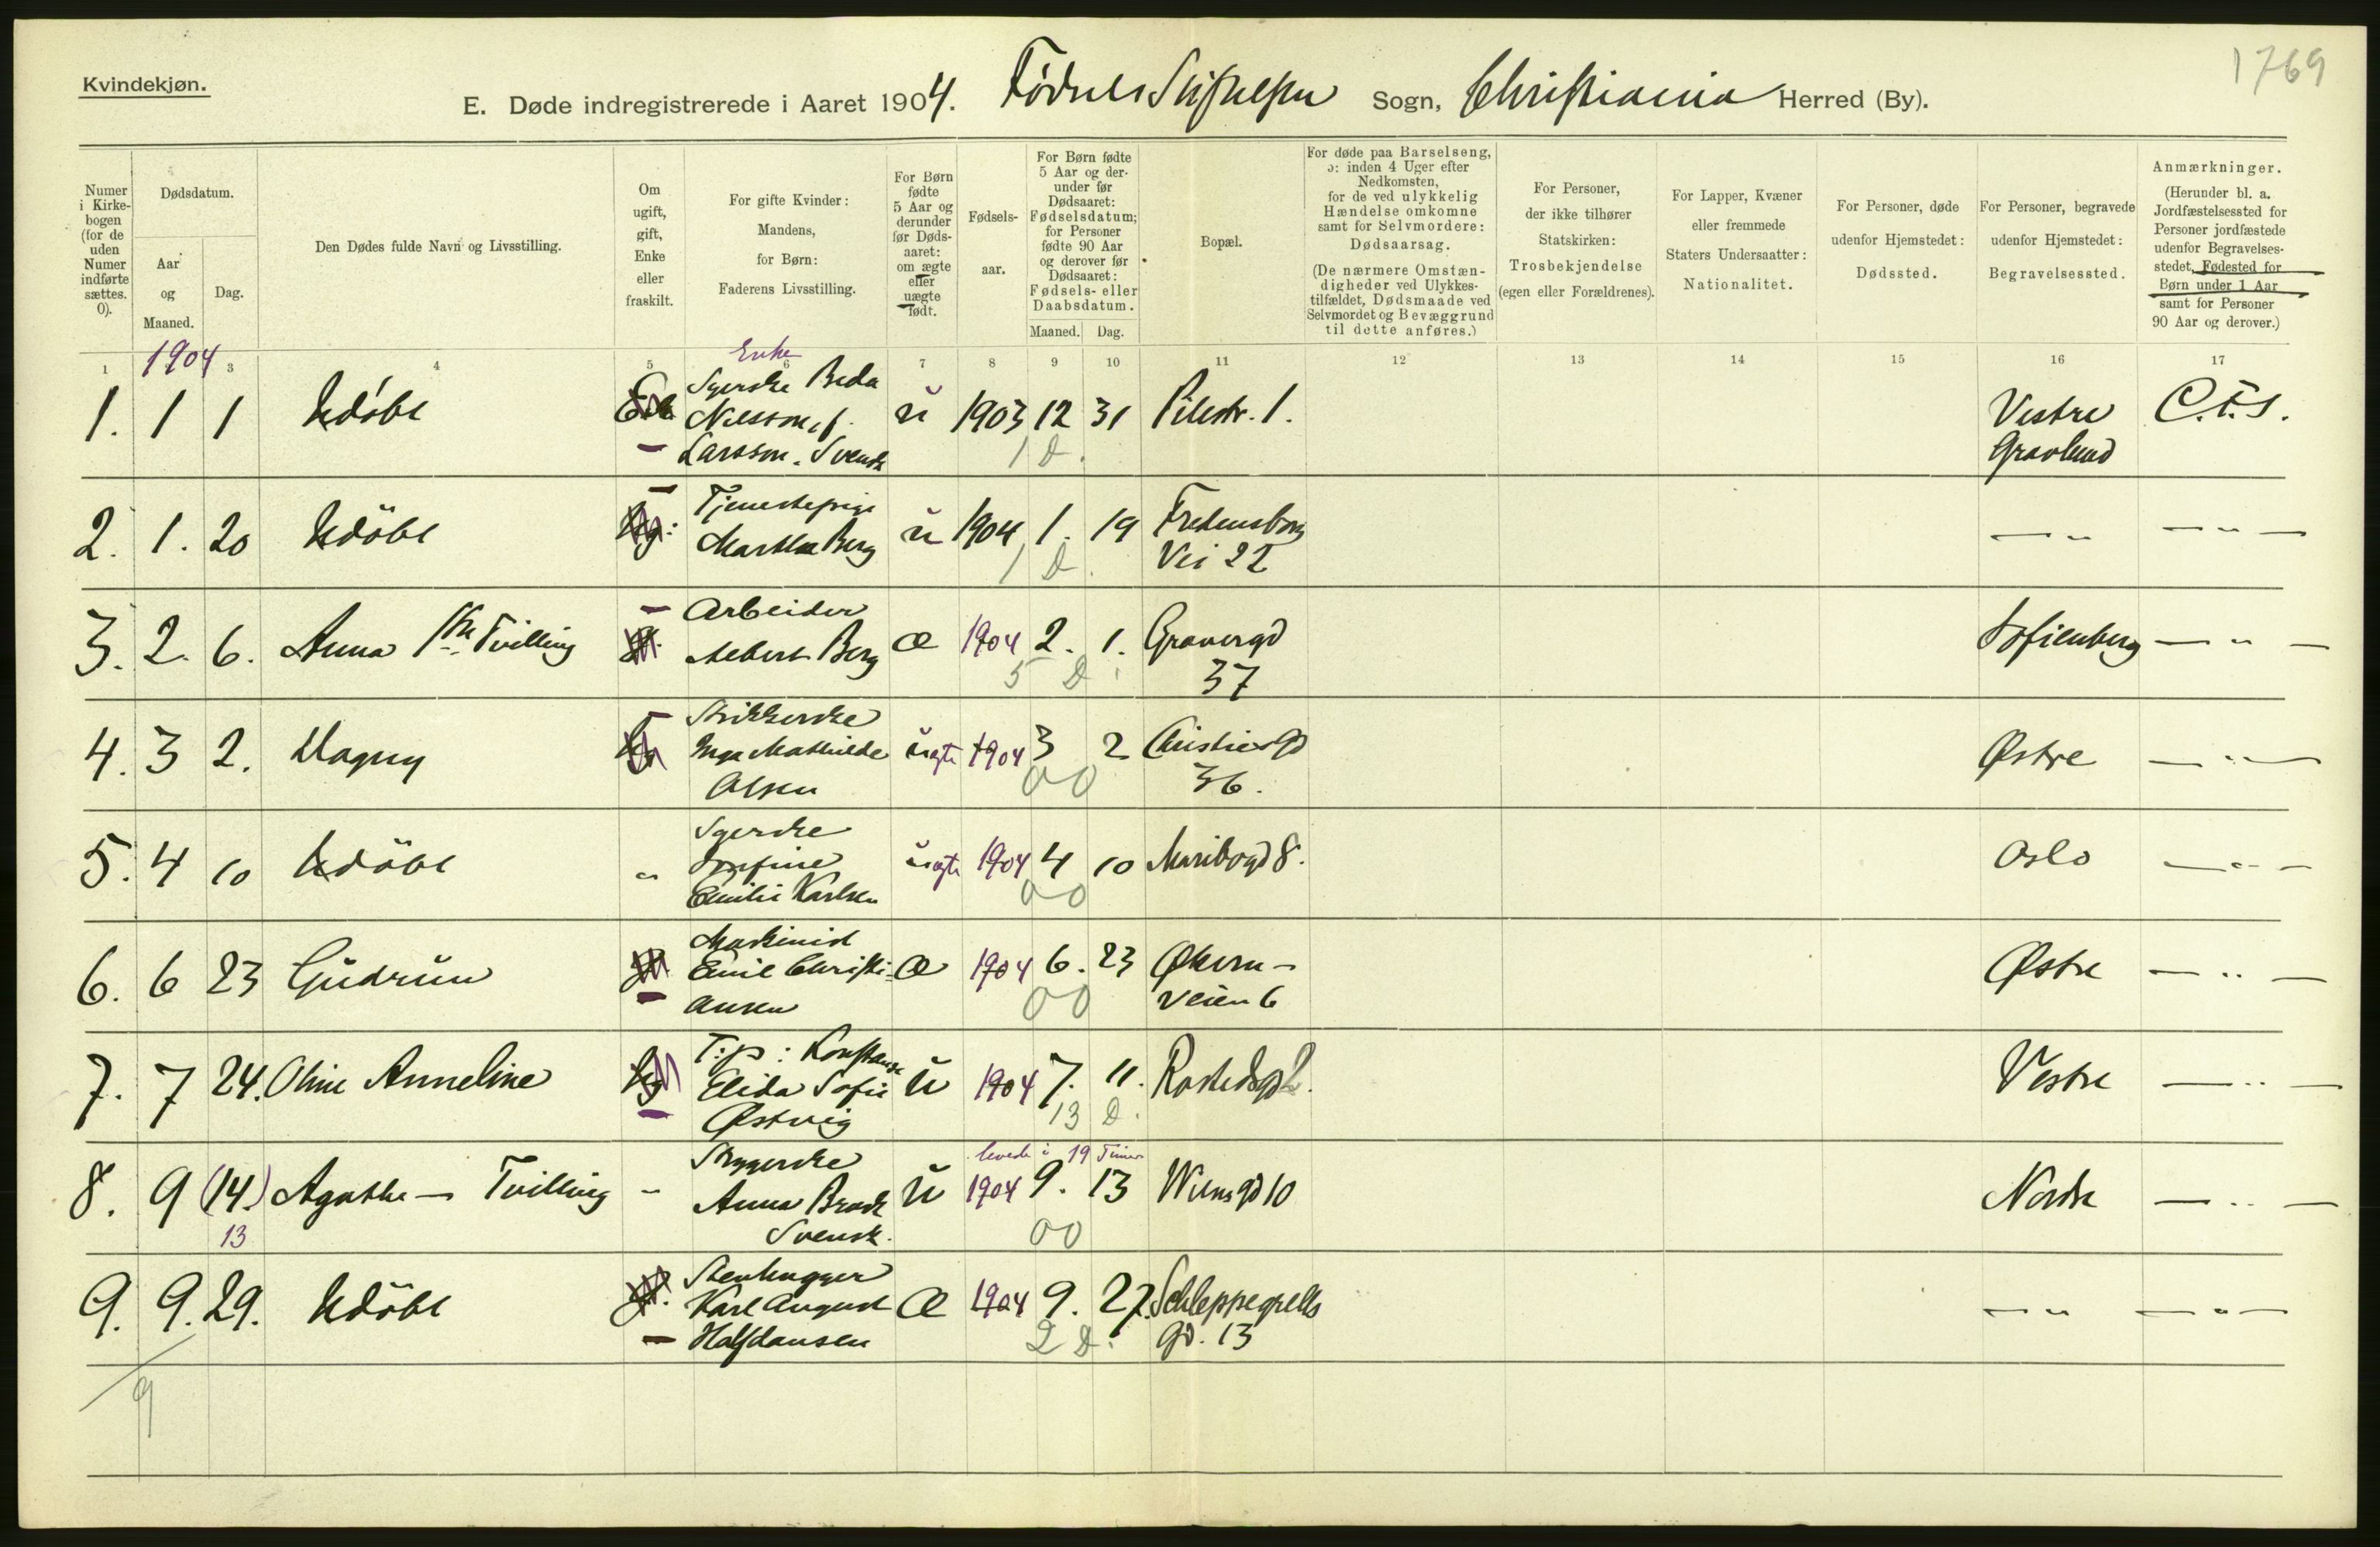 1769
Kvindekjøn.
E. Døde indregistrerede i Aaret 1904. Fødsels Stiftelsen Sogn, Christiania Herred (By).
Numer i Kirke-bogen (for de uden Numer indførte sættes. 0).
Dødsdatum.
Aar og Maaned.
Dag.
Den Dødes fulde Navn og Livsstilling.
Om ugift, gift, Enke eller fraskilt.
For gifte Kvinder: Mandens, for Børn: Faderens Livsstilling.
For Børn fødte 5 Aar og derunder før Døds-aaret: om ægte eller uægte født.
Fødsels-aar.
For Børn fødte 5 Aar og der-under før Dødsaaret: Fødselsdatum; for Personer fødte 90 Aar og derover før Dødsaaret: Fødsels- eller Daabsdatum.
Maaned. Dag.
Bopæl.
For døde paa Barselseng, ɔ: inden 4 Uger efter Nedkomsten, for de ved ulykkelig Hændelse omkomne samt for Selvmordere: Dødsaarsag.
(De nærmere Omstæn-digheder ved Ulykkes-tilfældet, Dødsmaade ved Selvmordet og Bevæggrund til dette anføres.)
For Personer, der ikke tilhører Statskirken: Trosbekjendelse (egen eller Forældrenes).
For Lapper, Kvæner eller fremmede Staters Undersaatter: Nationalitet.
For Personer, døde udenfor Hjemstedet: Dødssted.
For Personer, begravede udenfor Hjemstedet: Begravelsessted.
Anmærkninger.
(Herunder bl. a. Jordfæstelsessted for Personer jordfæstede udenfor Begravelses-stedet, Fødested for Børn under 1 Aar samt for Personer 90 Aar og derover.)
1 1904 3 4 5 6 7 8 9 10 11 12 13 14 15 16 17
Enke
1. 1 1 Udøbt Syerske Beda ü 1903 12 31 Pilestr. 1. Vestre C.t.S.
Nilsson, f. Gravlund
— Larsson. Svensk 1 D.
2. 1. 20 Udöbt — Tjenestepige ü 1904 1. 19 Fredensborg — " — " —
Martha Berg 1 D. Vei 22
3. 2. 6. Anna 1ste Tvilling — Arbeider Æ 1904 2. 1. Gravergd Sofienberg — " —
Albert Berg 5 D. 37
4. 3 2. Dagny — Strikkerske üægte 1904 3 2 Christiesgd Østre — " —
Inga Mathilde 00 36.
Olsen
5. 4 10 Udöbt " Syerske üægte 1904 4 10 Maribogd 8. Oslo — " —
Josefine 00
Emilie Karlsen
6. 6 23 Güdrün Maskinist Æ 1904 6. 23 Økern- Østre — " —
Emil Christi- 00 veien 6
— ansen
7. 7 24. Oline Anneline T.p: Konstanse ü 1904 7. 11. Rostedsgd 2. Vestre — " —
Elida Sofie 13 D.
— Østvig
levede i 19 Timer
8. 9 (14.) Agathe — Tvilling — Strygerske ü 1904 9. 13 Wiensgd 10 Nordre — " —
13 Anna Brask 00
Svensk.
9. 9. 29. Udöbt Stenhugger Æ 1904 9. 27. Schleppegrells — " — " —
Karl August 2 D. gd. 13
— Halfdansen
9